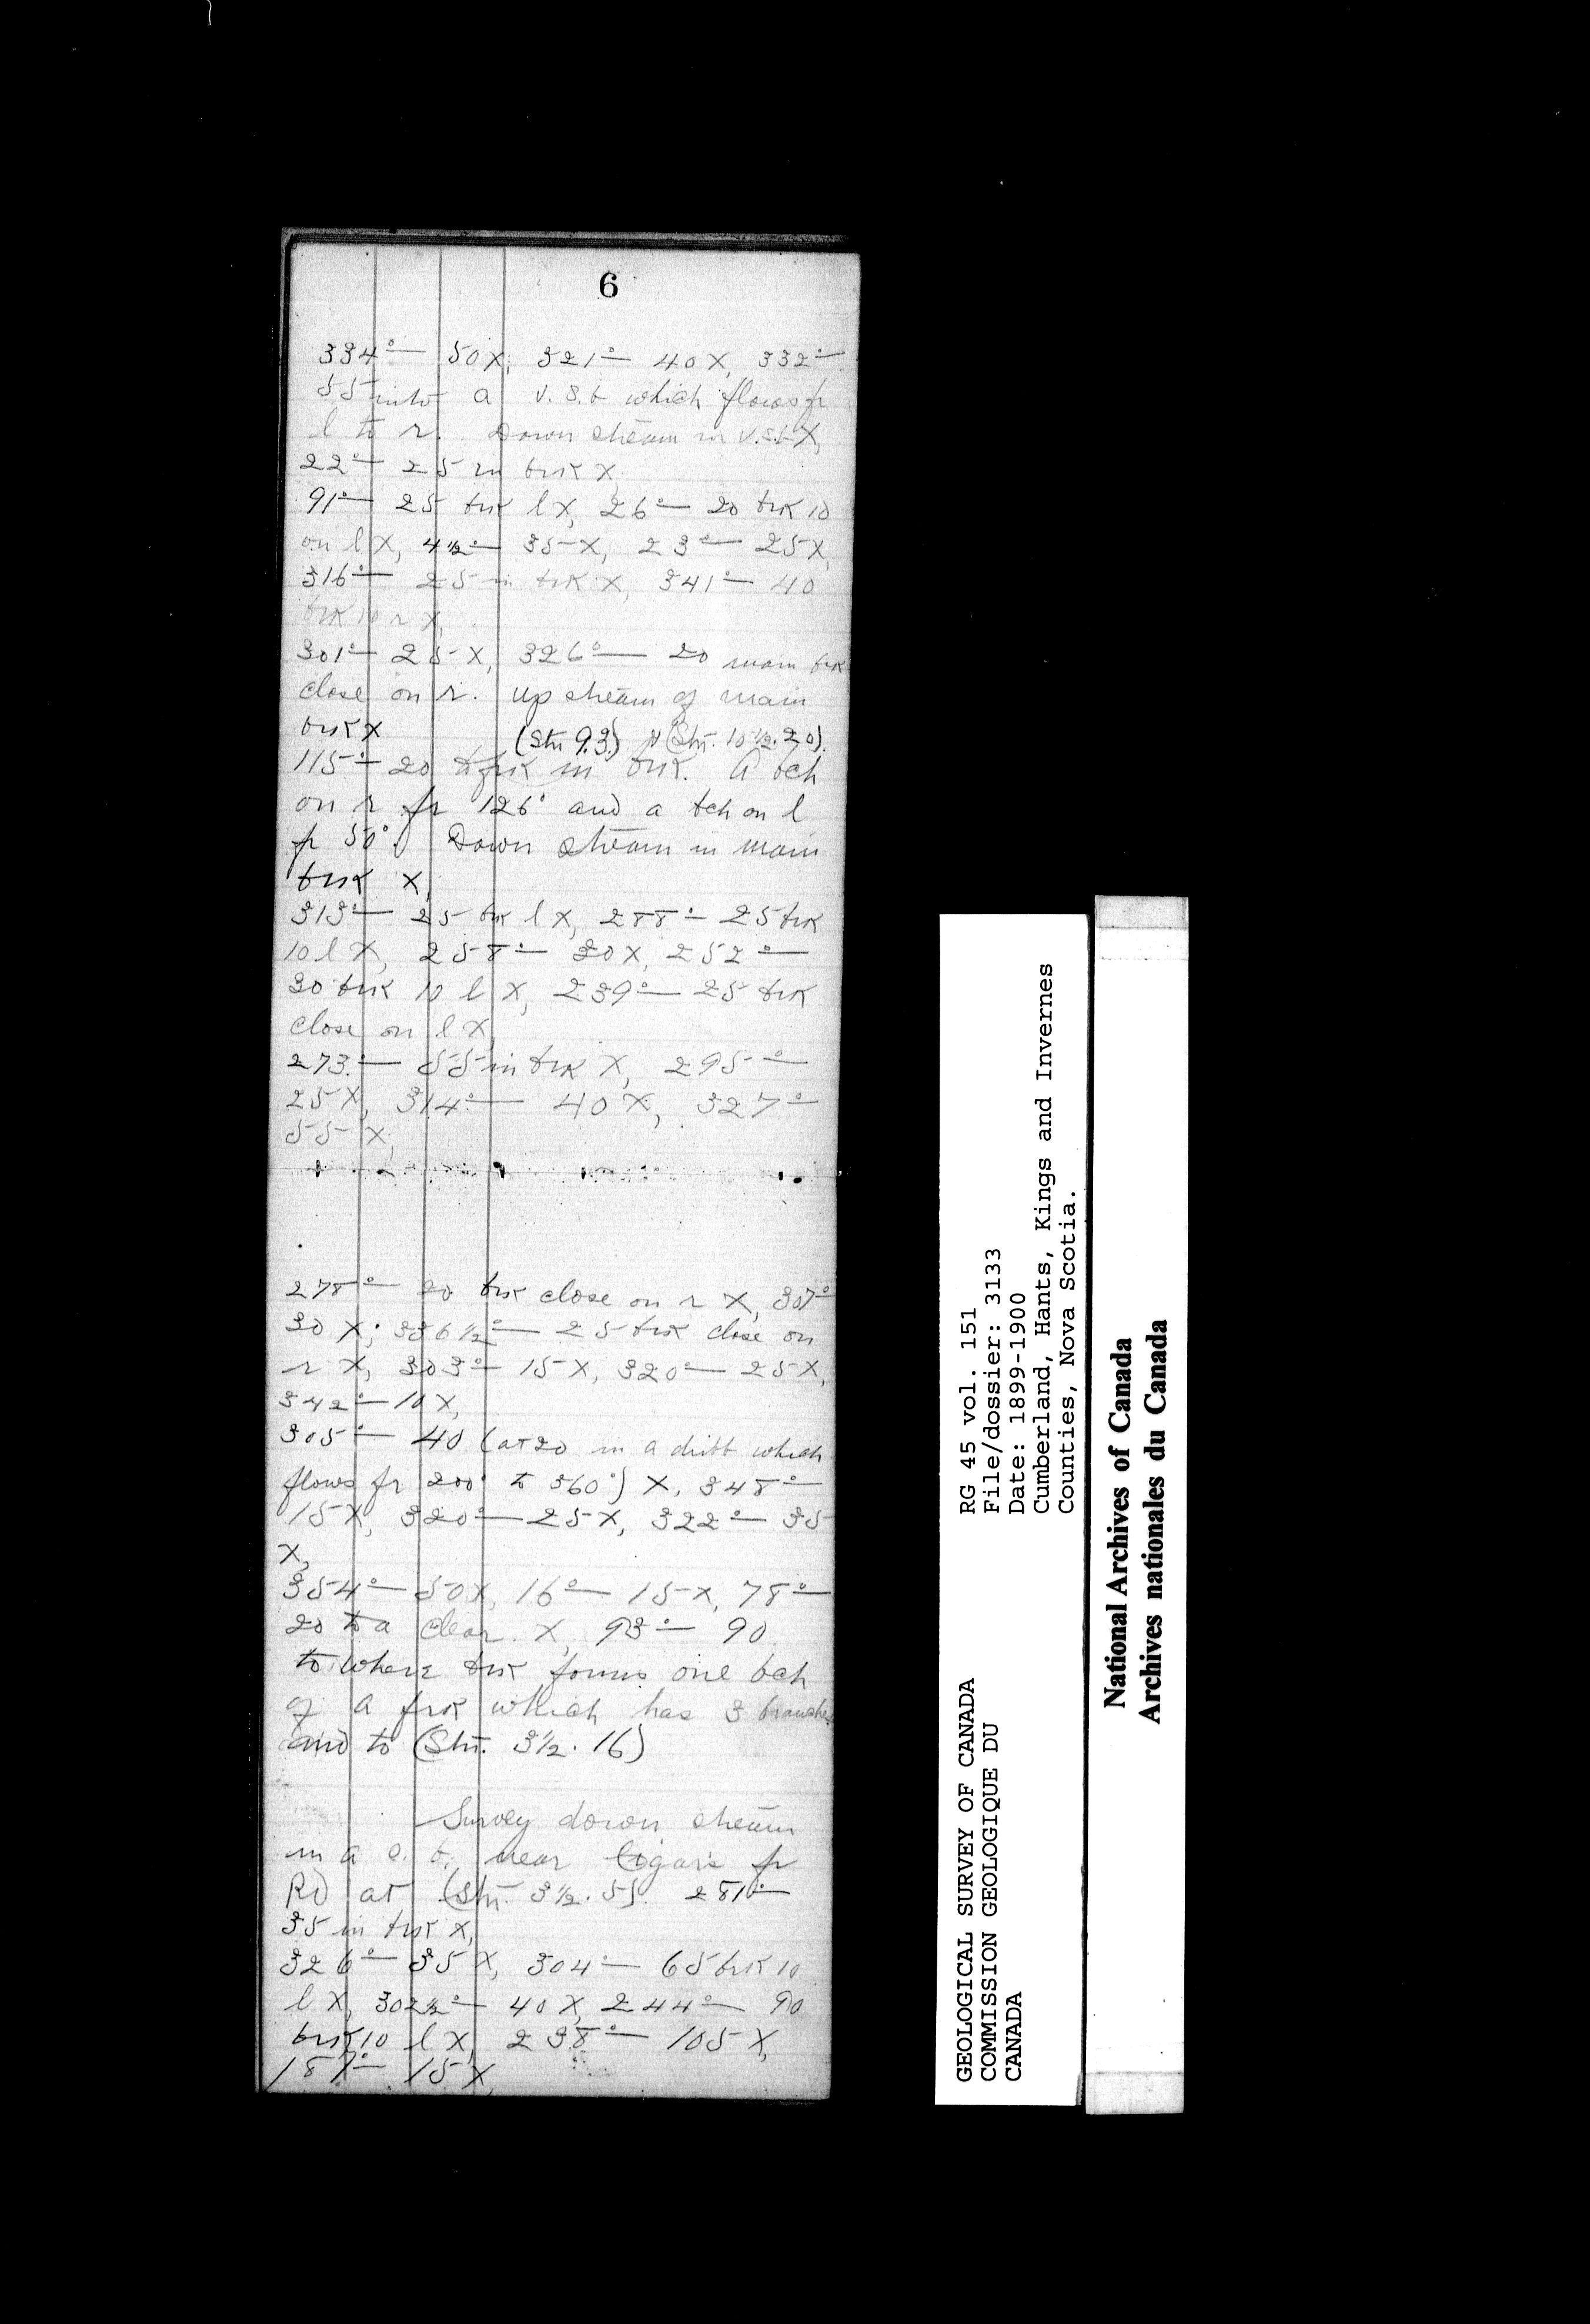 6
334°— 50 X, 321°— 40 X, 332°—
55 into a v. s. b which flows fr
l to r. Down stream in v.s.b X,
22°— 25 in brk X,
91°— 25 brk l X, 26°— 20 brk 10
on l X, 4½°— 35 X, 23°— 25 X,
316°— 25 in brk X, 341°— 40
brk 10 r X,
301°— 25 X, 326°— 20 main brk
close on r. up stream of main
brk X (Stn 9.3.) (Stn. 10½. 20).
115°— 20 to frk in brk. A bch
on r fr 126° and a bch on l
fr 50°. Down stream in main
brk X,
313°— 25 brk l X, 288°— 25 brk
10 l X, 258°— 30 X, 252°—
30 brk 10 l X, 239°— 25 brk
close on l X
273°— 55 in brk X, 295°—
25 X, 314°— 40 X, 327°—
55 X,
278°— 20 brk close on r X, 307°—
30 X; 336½°— 25 brk close on
r X, 303°— 15 X, 320°— 25 X,
342°— 10 X,
305°— 40 (at 20 in a which
flows fr 200° to 360°) X, 348°—
15 X, 320°— 25 X, 322°— 35
X,
354°— 50 X, 16°— 15 X, 78°—
20 to a clear. X, 93°— 90
to where brk forms one bch
of a frk which has 3 branches
and to (Stn. 3½. 16)
Survey down stream
in a s. b. near fr
RD at (Stn. 3½. 5). 281°—
35 in brk X,
326°— 35 X, 304°— 65 brk 10
l X, 302½°— 40 X, 244°— 90
brk 10 l X, 238°— 105 X,
187°— 15 X,
GEOLOGICAL SURVEY OF CANADA
COMMISSION GEOLOGIQUE DU
CANADA
RG 45 vol. 151
File/dossier: 3133
Date: 1899-1900
Cumberland, Hants, Kings and Invernes
Counties, Nova Scotia.
National Archives of Canada
Archives nationales du Canada